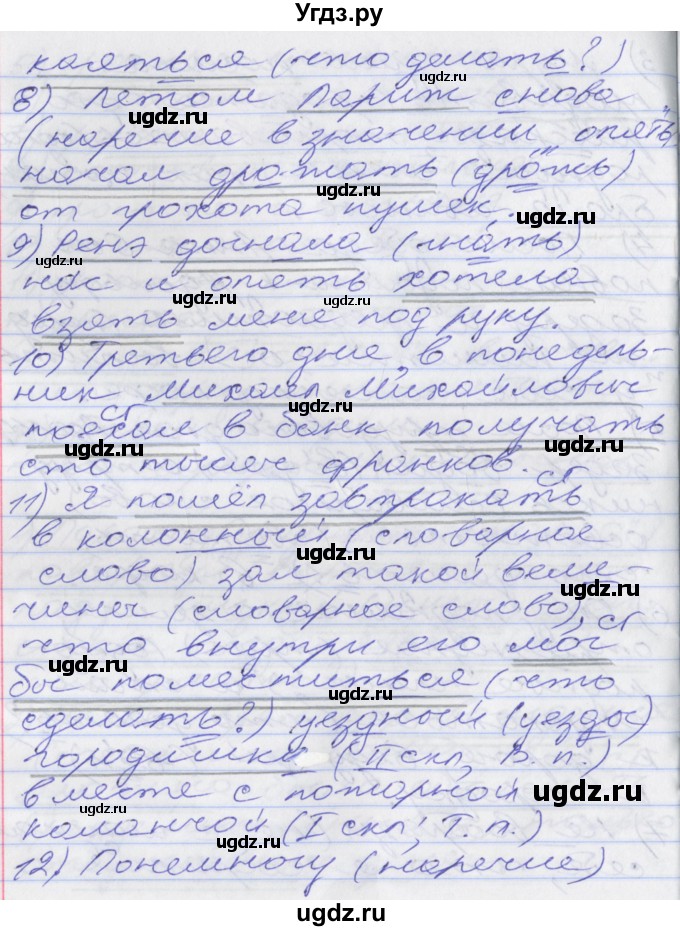 Угдз.ру
каяться (что делать?)
8) Летом Париж снова
(наречие в значении „опять"
начал дрожать (дрожь)
от грохота пушек.
9) Ренэ догнала (гнать)
нас и опять хотела
взять меня под руку.
10) Третьего дня, в понедель-
ник Михаил Михайлович
поехал в банк получать
сто тысяч франков.
11) Я пошёл завтракать
в колонный (словарное
слово) зал такой вели-
чины (словарное слово),
что внутри его мог
бы поместиться (что
сделать?) уездный (уезды)
городишка (II скл, В. п.)
вместе с пожарной
каланчой (I скл; Т. п.)
12) Понемногу (наречие)
ugdz.ru